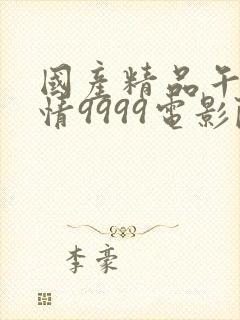 國產精品午
情9999電影
李豪